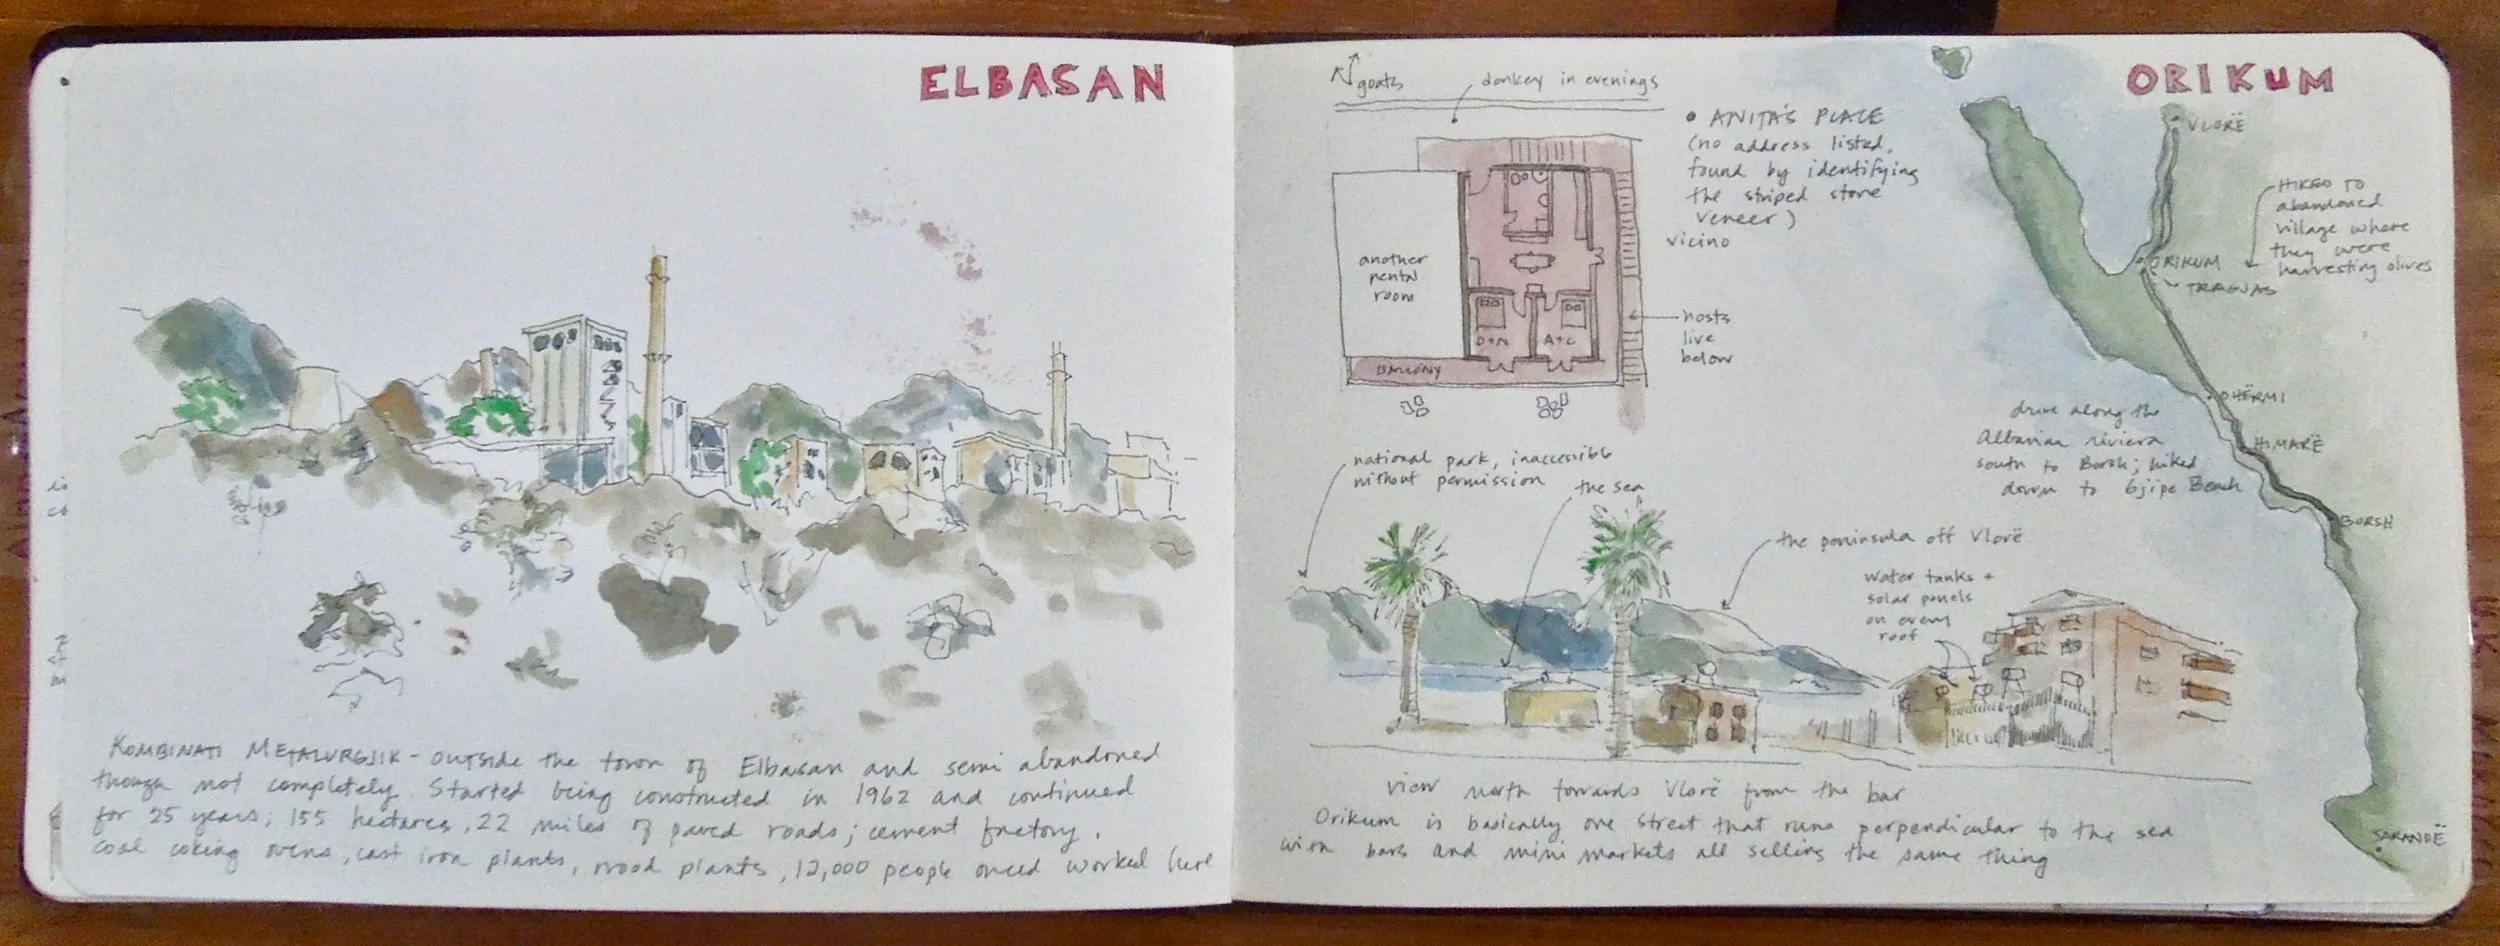 ELBASAN
KOMBINATI METALURGJIK - outside the town of Elbasan and semi abandoned
though not completely. Started being constructed in 1962 and continued
for 25 years; 155 hectares, 22 miles of paved roads; cement factory,
coal coking ovens, cast iron plants, wood plants, 12,000 people onced worked here
ORIKUM
goats
donkey in evenings
• ANITA'S PLACE
(no address listed,
found by identifying
the striped stone
veneer)
vicino
another
rental
room
hosts
live
below
D+N
A+C
BALCONY
VLORË
HIKED TO
abandoned
village where
they were
harvesting olives
ORIKUM
TRAGJAS
DHËRMI
drive along the
Albanian riviera
south to Borsh; hiked
down to Gjipe Beach
HIMARË
BORSH
SARANDË
national park, inaccessible
without permission
the sea
the peninsula off Vlorë
water tanks +
solar panels
on every
roof
view north towards Vlorë from the bar
Orikum is basically one street that runs perpendicular to the sea
with bars and mini markets all selling the same thing